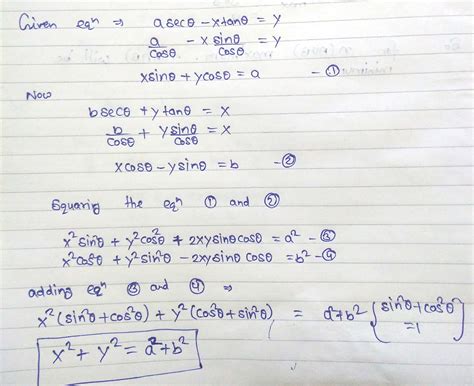 Given eqⁿ ⇒ a secθ - x tanθ = y
a/cosθ - x sinθ/cosθ = y
x sinθ + y cosθ = a - ①
Now
b secθ + y tanθ = x
b/cosθ + y sinθ/cosθ = x
x cosθ - y sinθ = b - ②
Squaring the eqⁿ ① and ②
x² sin²θ + y² cos²θ + 2xy sinθ cosθ = a² - ③
x² cos²θ + y² sin²θ - 2xy sinθ cosθ = b² - ④
adding eqⁿ ③ and ④ ⇒
x² (sin²θ + cos²θ) + y² (cos²θ + sin²θ) = a² + b² {sin²θ + cos²θ = 1}
x² + y² = a² + b²